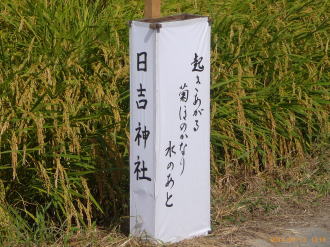 日吉神社
起きあがる
菊ほのかなり
水のあと